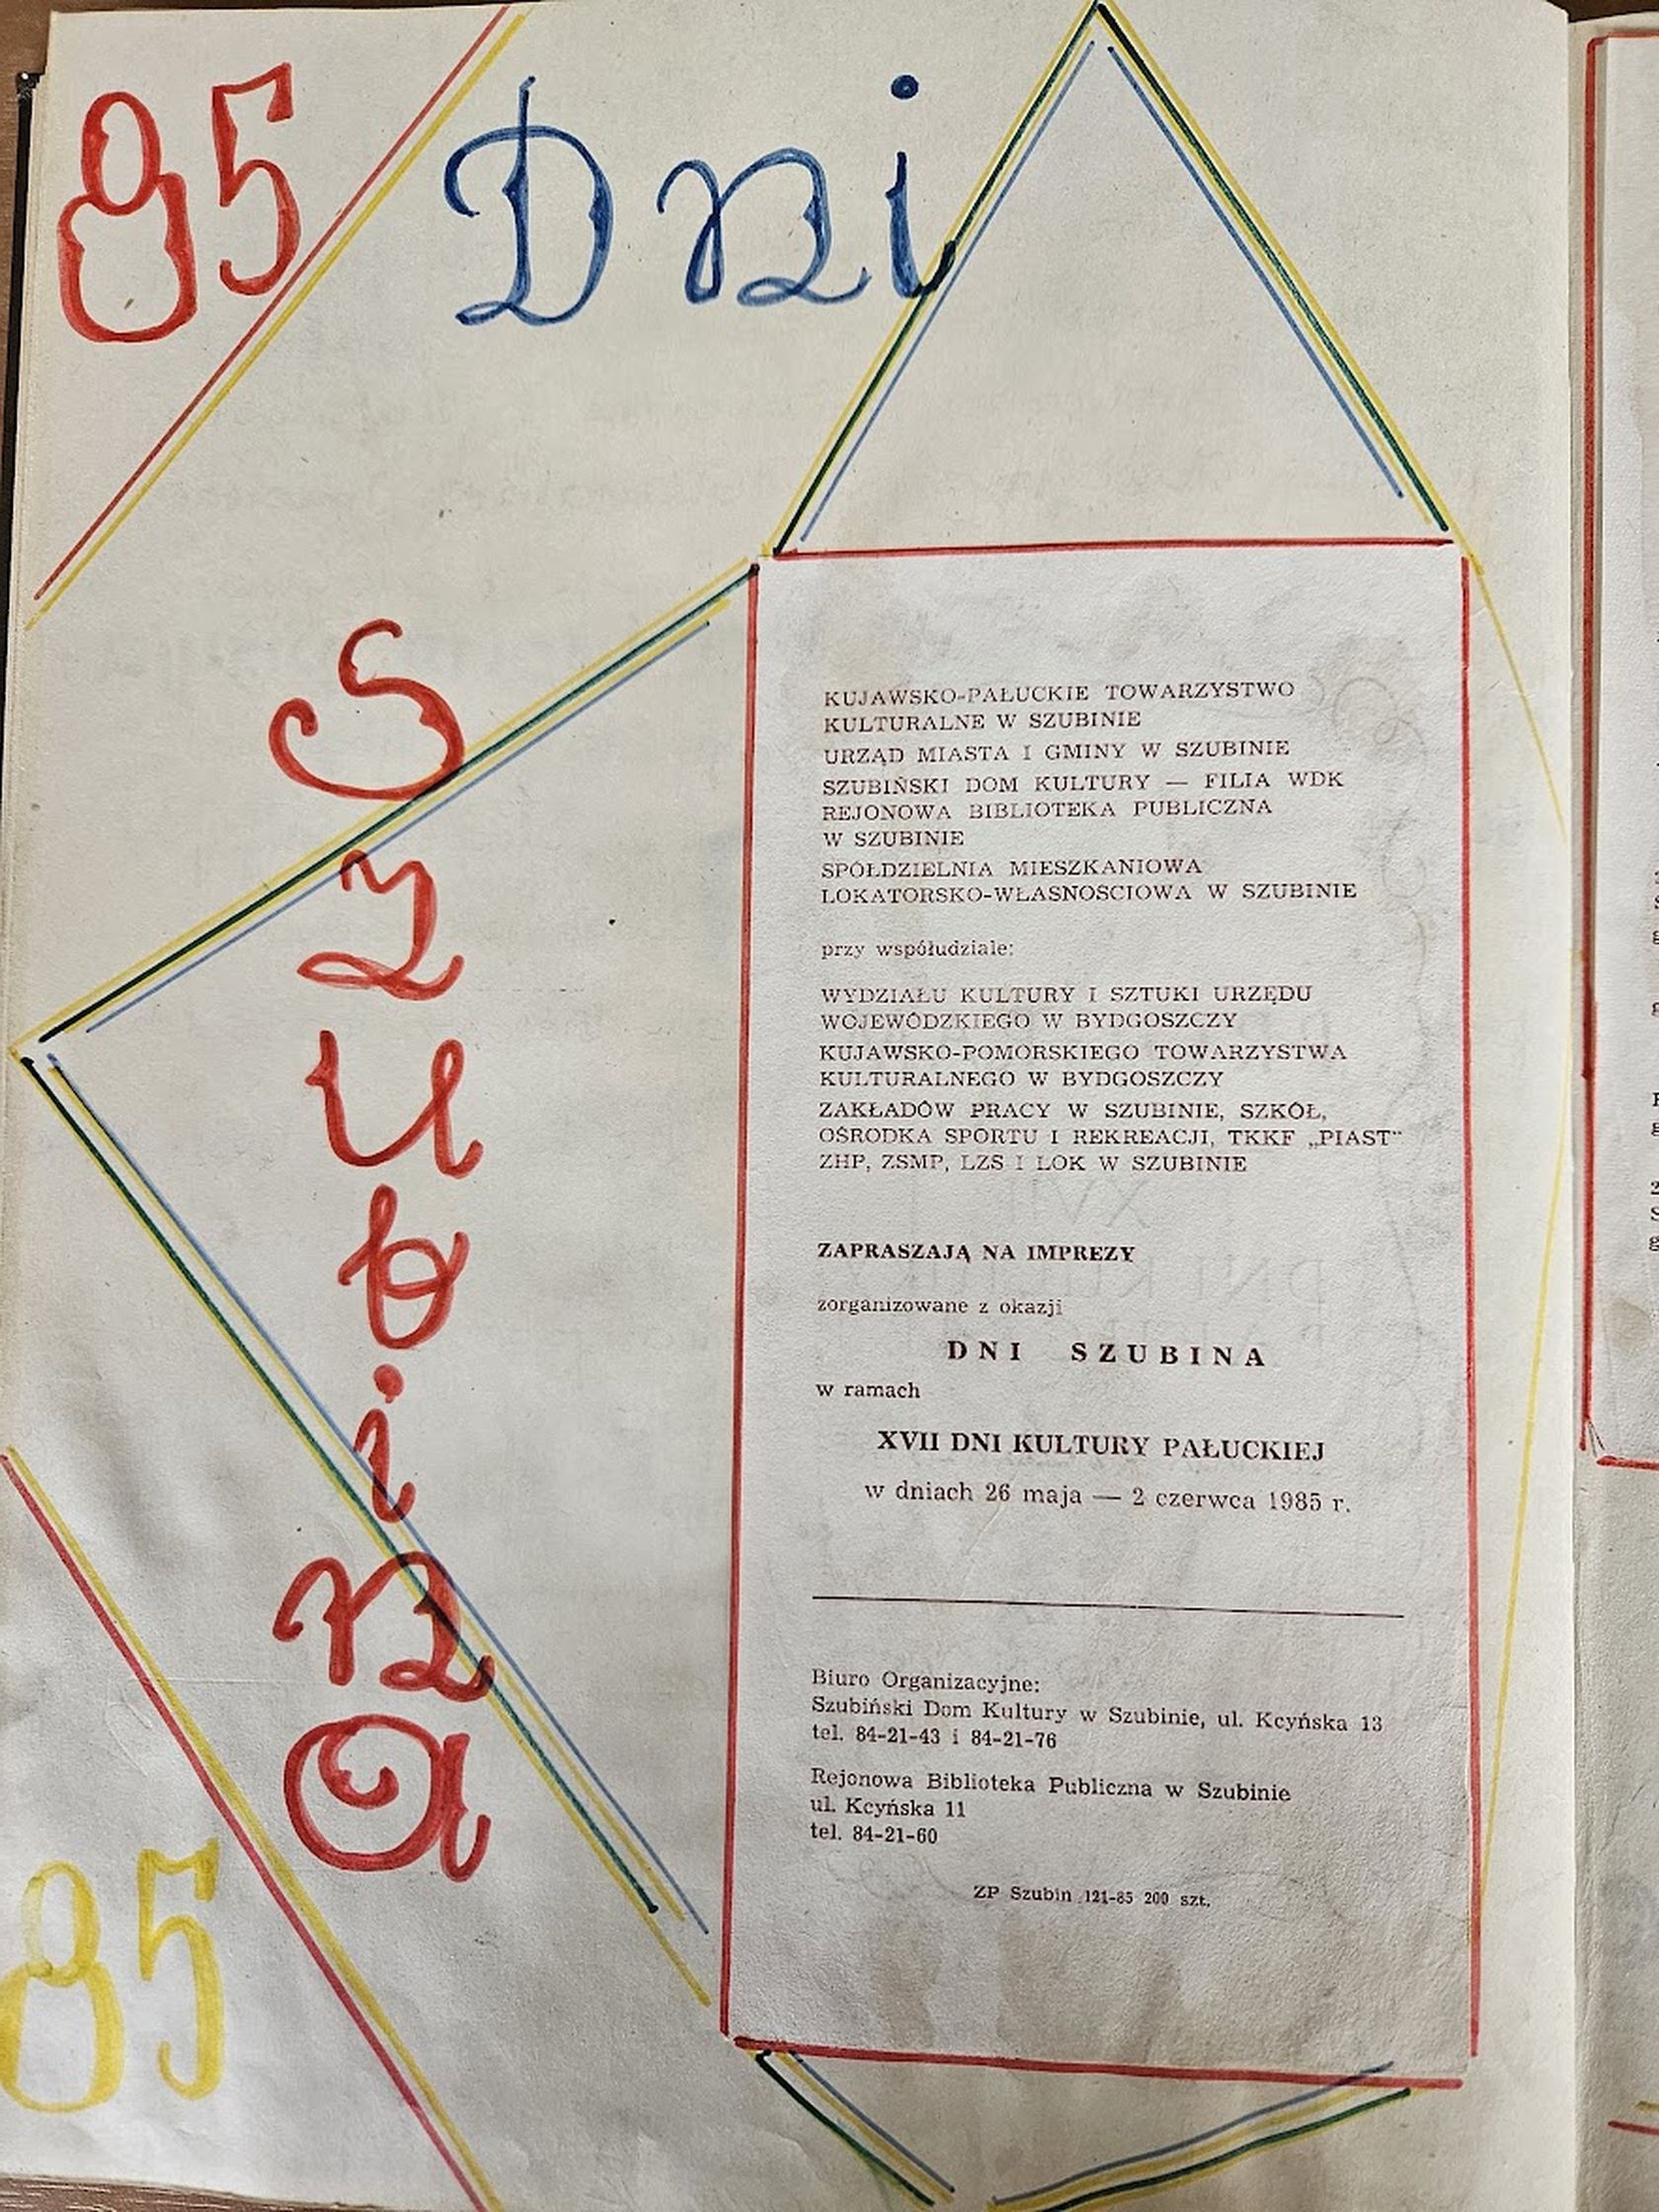 85 Dni
Szubina
85
KUJAWSKO-PAŁUCKIE TOWARZYSTWO
KULTURALNE W SZUBINIE
URZĄD MIASTA I GMINY W SZUBINIE
SZUBIŃSKI DOM KULTURY — FILIA WDK
REJONOWA BIBLIOTEKA PUBLICZNA
W SZUBINIE
SPÓŁDZIELNIA MIESZKANIOWA
LOKATORSKO-WŁASNOSCIOWA W SZUBINIE
przy współudziale:
WYDZIAŁU KULTURY I SZTUKI URZĘDU
WOJEWÓDZKIEGO W BYDGOSZCZY
KUJAWSKO-POMORSKIEGO TOWARZYSTWA
KULTURALNEGO W BYDGOSZCZY
ZAKŁADÓW PRACY W SZUBINIE, SZKÓŁ,
OŚRODKA SPORTU I REKREACJI, TKKF „PIAST"
ZHP, ZSMP, LZS I LOK W SZUBINIE
ZAPRASZAJĄ NA IMPREZY
zorganizowane z okazji
DNI SZUBINA
w ramach
XVII DNI KULTURY PAŁUCKIEJ
w dniach 26 maja — 2 czerwca 1985 r.
Biuro Organizacyjne:
Szubiński Dom Kultury w Szubinie, ul. Kcyńska 13
tel. 84-21-43 i 84-21-76
Rejonowa Biblioteka Publiczna w Szubinie
ul. Kcyńska 11
tel. 84-21-60
ZP Szubin 121-85 200 szt.